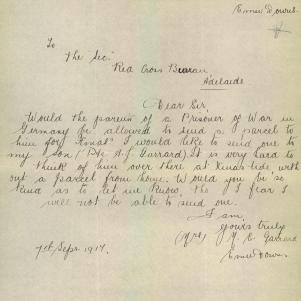 To
The Sec.
Red Cross Bureau,
Adelaide
Dear Sir,
Would the parents of a Prisoner of War in
Germany be allowed to send a parcel to
him for Xmas. I would like to send one to
my son (Pte A. J. Garrard) It is very hard to
think of him over there at Xmas tide, with
out a parcel from home. Would you be so
kind as to let me know, tho I fear I
will not be able to send one.
I am,
yours truly
(Mrs) E. Garrard
7th Sept. 1917.